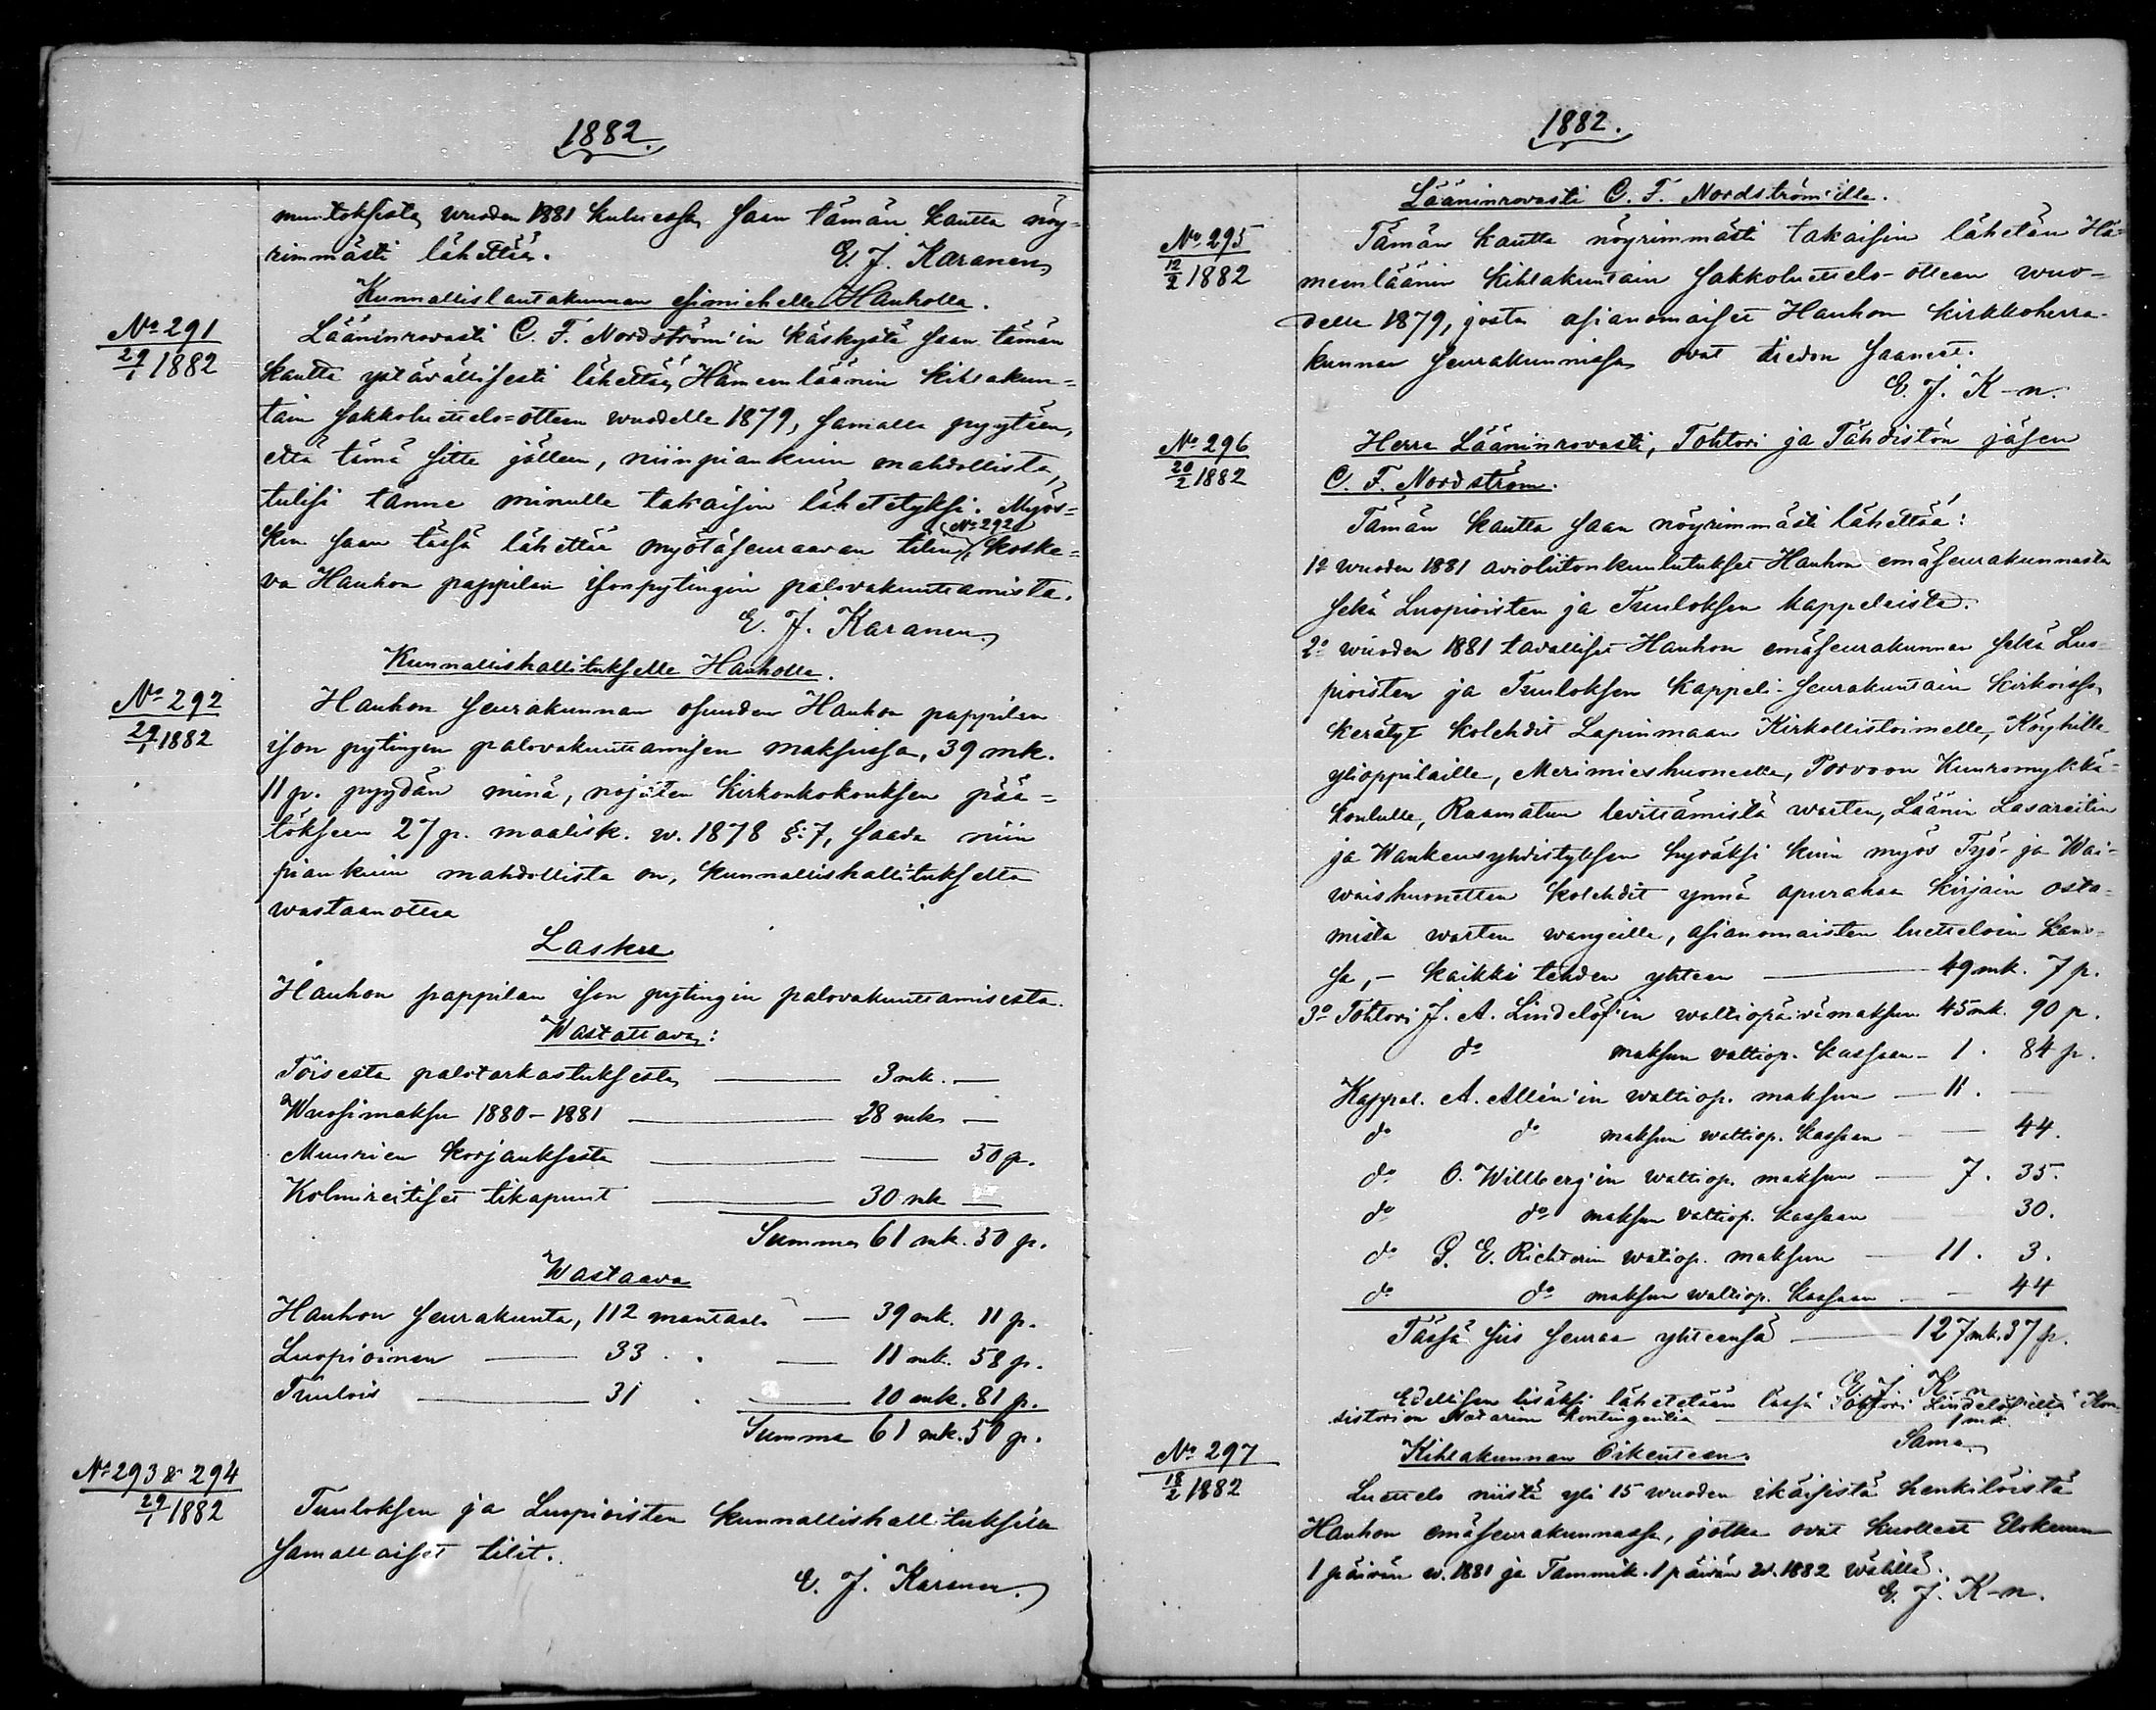 1882.
muutoksista wuoden 1881 kuluessa saan tämän kautta nöy-
rimmästi lähettää.
E. J. Karanen
Kunnallislautakunnan esimiehelle Hauholla.
No 291
29/1 1882
Lääninrovasti C. F. Nordström'in käskystä saan tämän
kautta ystävällisesti lähettää Hämeenläänin kihlakun-
tain sakkoluettelo-otteen wuodelle 1879, samalla pyytäen,
että tämä sitte jälleen, niinpiankuin mahdollista,
tulisi tänne minulle takaisin lähetetyksi. Myös-
kin saan tässä lähettää myötäseuraavan tilin (No 292) koske-
va Hauhon pappilan isonpytingin palovakuuttamista.
E. J. Karanen
Kunnallishallitukselle Hauholla.
No 292
29/1 1882
Hauhon seurakunnan osuuden Hauhon pappilan
ison pytingin palovakuuttamisen maksussa, 39 mk.
11 p. pyydän minä, nojaten Kirkonkokouksen pää-
tökseen 27 p. maalisk. w. 1878 §:7, saada niin
pian kuin mahdollista on, kunnallishallitukselta
wastaanottaa
Lasku
Hauhon pappilan ison pytingin palovakuuttamisesta.
Wastattava:
Töisestä palotarkastuksesta — 3 mk. —
Wuosimaksu 1880-1881 — 28 mk —
Muurien korjauksesta — — 50 p.
Kolmireitiset tikapuut — 30 mk —
Summa 61 mk. 50 p.
Wastaava
Hauhon seurakunta, 112 manttaalia — 39 mk. 11 p.
Luopioinen — 33 . . — 11 mk. 58 p.
Tuulois — 31 . — 10 mk. 81 p.
Summa 61 mk. 50 p.
No 293 & 294
29/1 1882
Tuuloksen ja Luopioisten kunnallishallituksille
samallaiset tilit.
E. J. Karanen.
1882.
Lääninrovasti C. F. Nordström'ille.
No 295
12/2 1882
Tämän kautta nöyrimmästi takaisin lähetän Hä-
meenläänin kihlakuntain sakkoluettelo-otteen wuo-
delle 1879, josta asianomaiset Hauhon kirkkoherra-
kunnan seurakunnissa ovat tiedon saaneet.
E. J. K-n.
No 296
20/2 1882
Herra Lääninrovasti, Tohtori ja Tähdistön jäsen
C. F. Nordström.
Tämän kautta saan nöyrimmästi lähettää:
1o wuoden 1881 avioliitonkuulutukset Hauhon emäseurakunnasta
sekä Luopioisten ja Tuuloksen kappeleista.
2o wuoden 1881 tavalliset Hauhon emäseurakunnan sekä Luo-
pioisten ja Tuuloksen Kappeli-seurakuntain kirkoissa
kerätyt kolehdit Lapinmaan Kirkollistoimelle, Köyhille
ylioppilaille, Merimieshuoneelle, Porvoon Kuuromykkä-
koululle, Raamatun levittämistä warten, Läänin Lasareitin
ja Wankeusyhdistyksen hyväksi kuin myös Työ- ja Wai-
waishuonetten kolehdit ynnä apurahaa kirjain osta-
mista warten wangeille, asianomaisten luetteloin kans-
sa, - kaikki tehden yhteen — 49 mk. 7 p.
3o Tohtori J. A. Lindelöf'in waltiopäivämaksun 45 mk. 90 p.
do maksun valtiop. kassaan — 1. 84 p.
Kappal. A. Allén'in waltiop. maksun — 11. —
do do maksun waltiop. kassaan — — 44.
do O. Willberg'in waltiop. maksun — 7. 35.
do do maksun valtiop. kassaan — — 30.
do G. E. Richterin waltiop. maksun — 11. 3.
do do maksun waltiop. kassaan — — 44
Tässä siis seuraa yhteensä — 127 mk. 37 p.
E. J. K-n
Edellisen lisäksi lähetetään tässä Tohtori Lindelöf'iltä Kon-
sistorion Notarien kontingentia — 1 mk.
Sama
No 297
18/2 1882
Kihlakunnan Oikeuteen.
Luettelo niistä yli 15 wuoden ikäisistä henkilöistä
Hauhon emäseurakunnassa, jotka ovat kuolleet Elokuun
1 päivän w. 1881 ja Tammik. 1 päivän w. 1882 wälillä.
E. J. K-n.